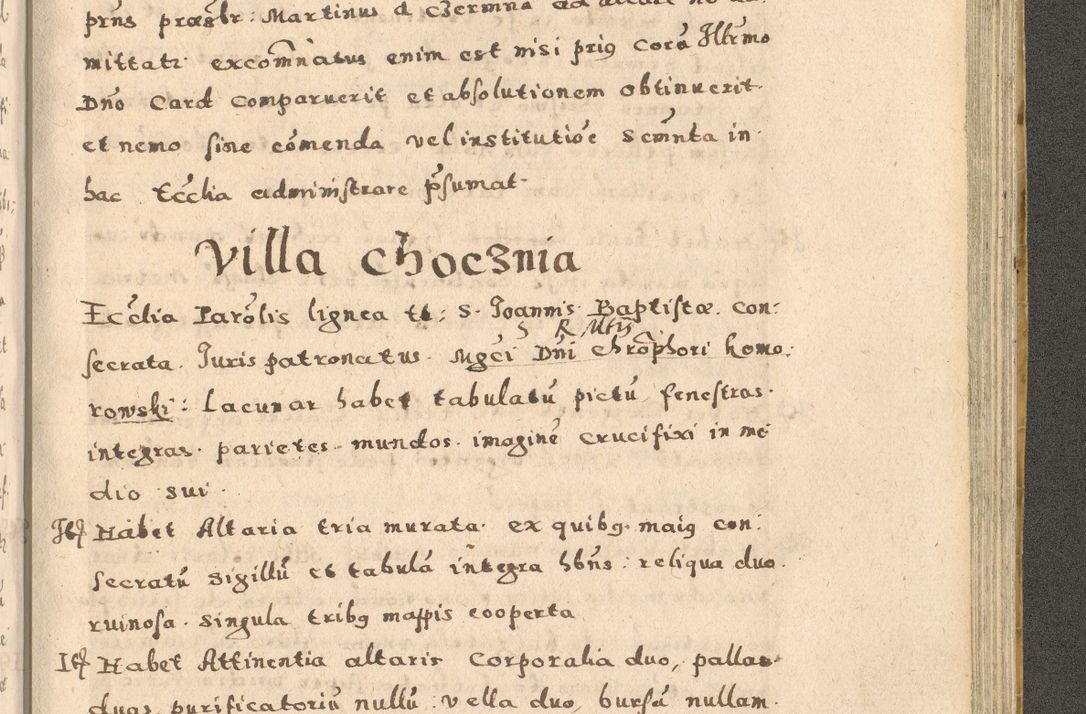 prns præsbr: Martinus d Czermna ad altare
mittatr excom̃natus enim est nisi priꝯ corã Illr̃mo
Dño Card comparuerit et absolutionem obtinuerit
et nemo sine cõmenda vel institutiõe scm̃nta in
hac Ecc̃lia administrare p̃sumat
Villa Chocznia
Ecc̃lia Parõlis lignea tt: S. Joannis Baptistæ con:
secrata. Juris patronatus. Mgc̃i Dñi Chrõphori Komo,
S R Mtis
rowski: Lacunar habet tabulatũ pictũ, fenestras
integras. parietes. mundos. imaginẽ Crucifixi in me
dio sui.
Itẽ Habet Altaria tria murata. ex quibꝯ maiꝯ con:
secratũ sigillũ et tabulã integra hbñs. reliqua duo.
ruinosa. singula tribꝯ mappis cooperta
Itẽ Habet Attinentia altaris Corporalia duo, pallas
duas, purificatoriũ nullũ. vella duo, bursã nullam.